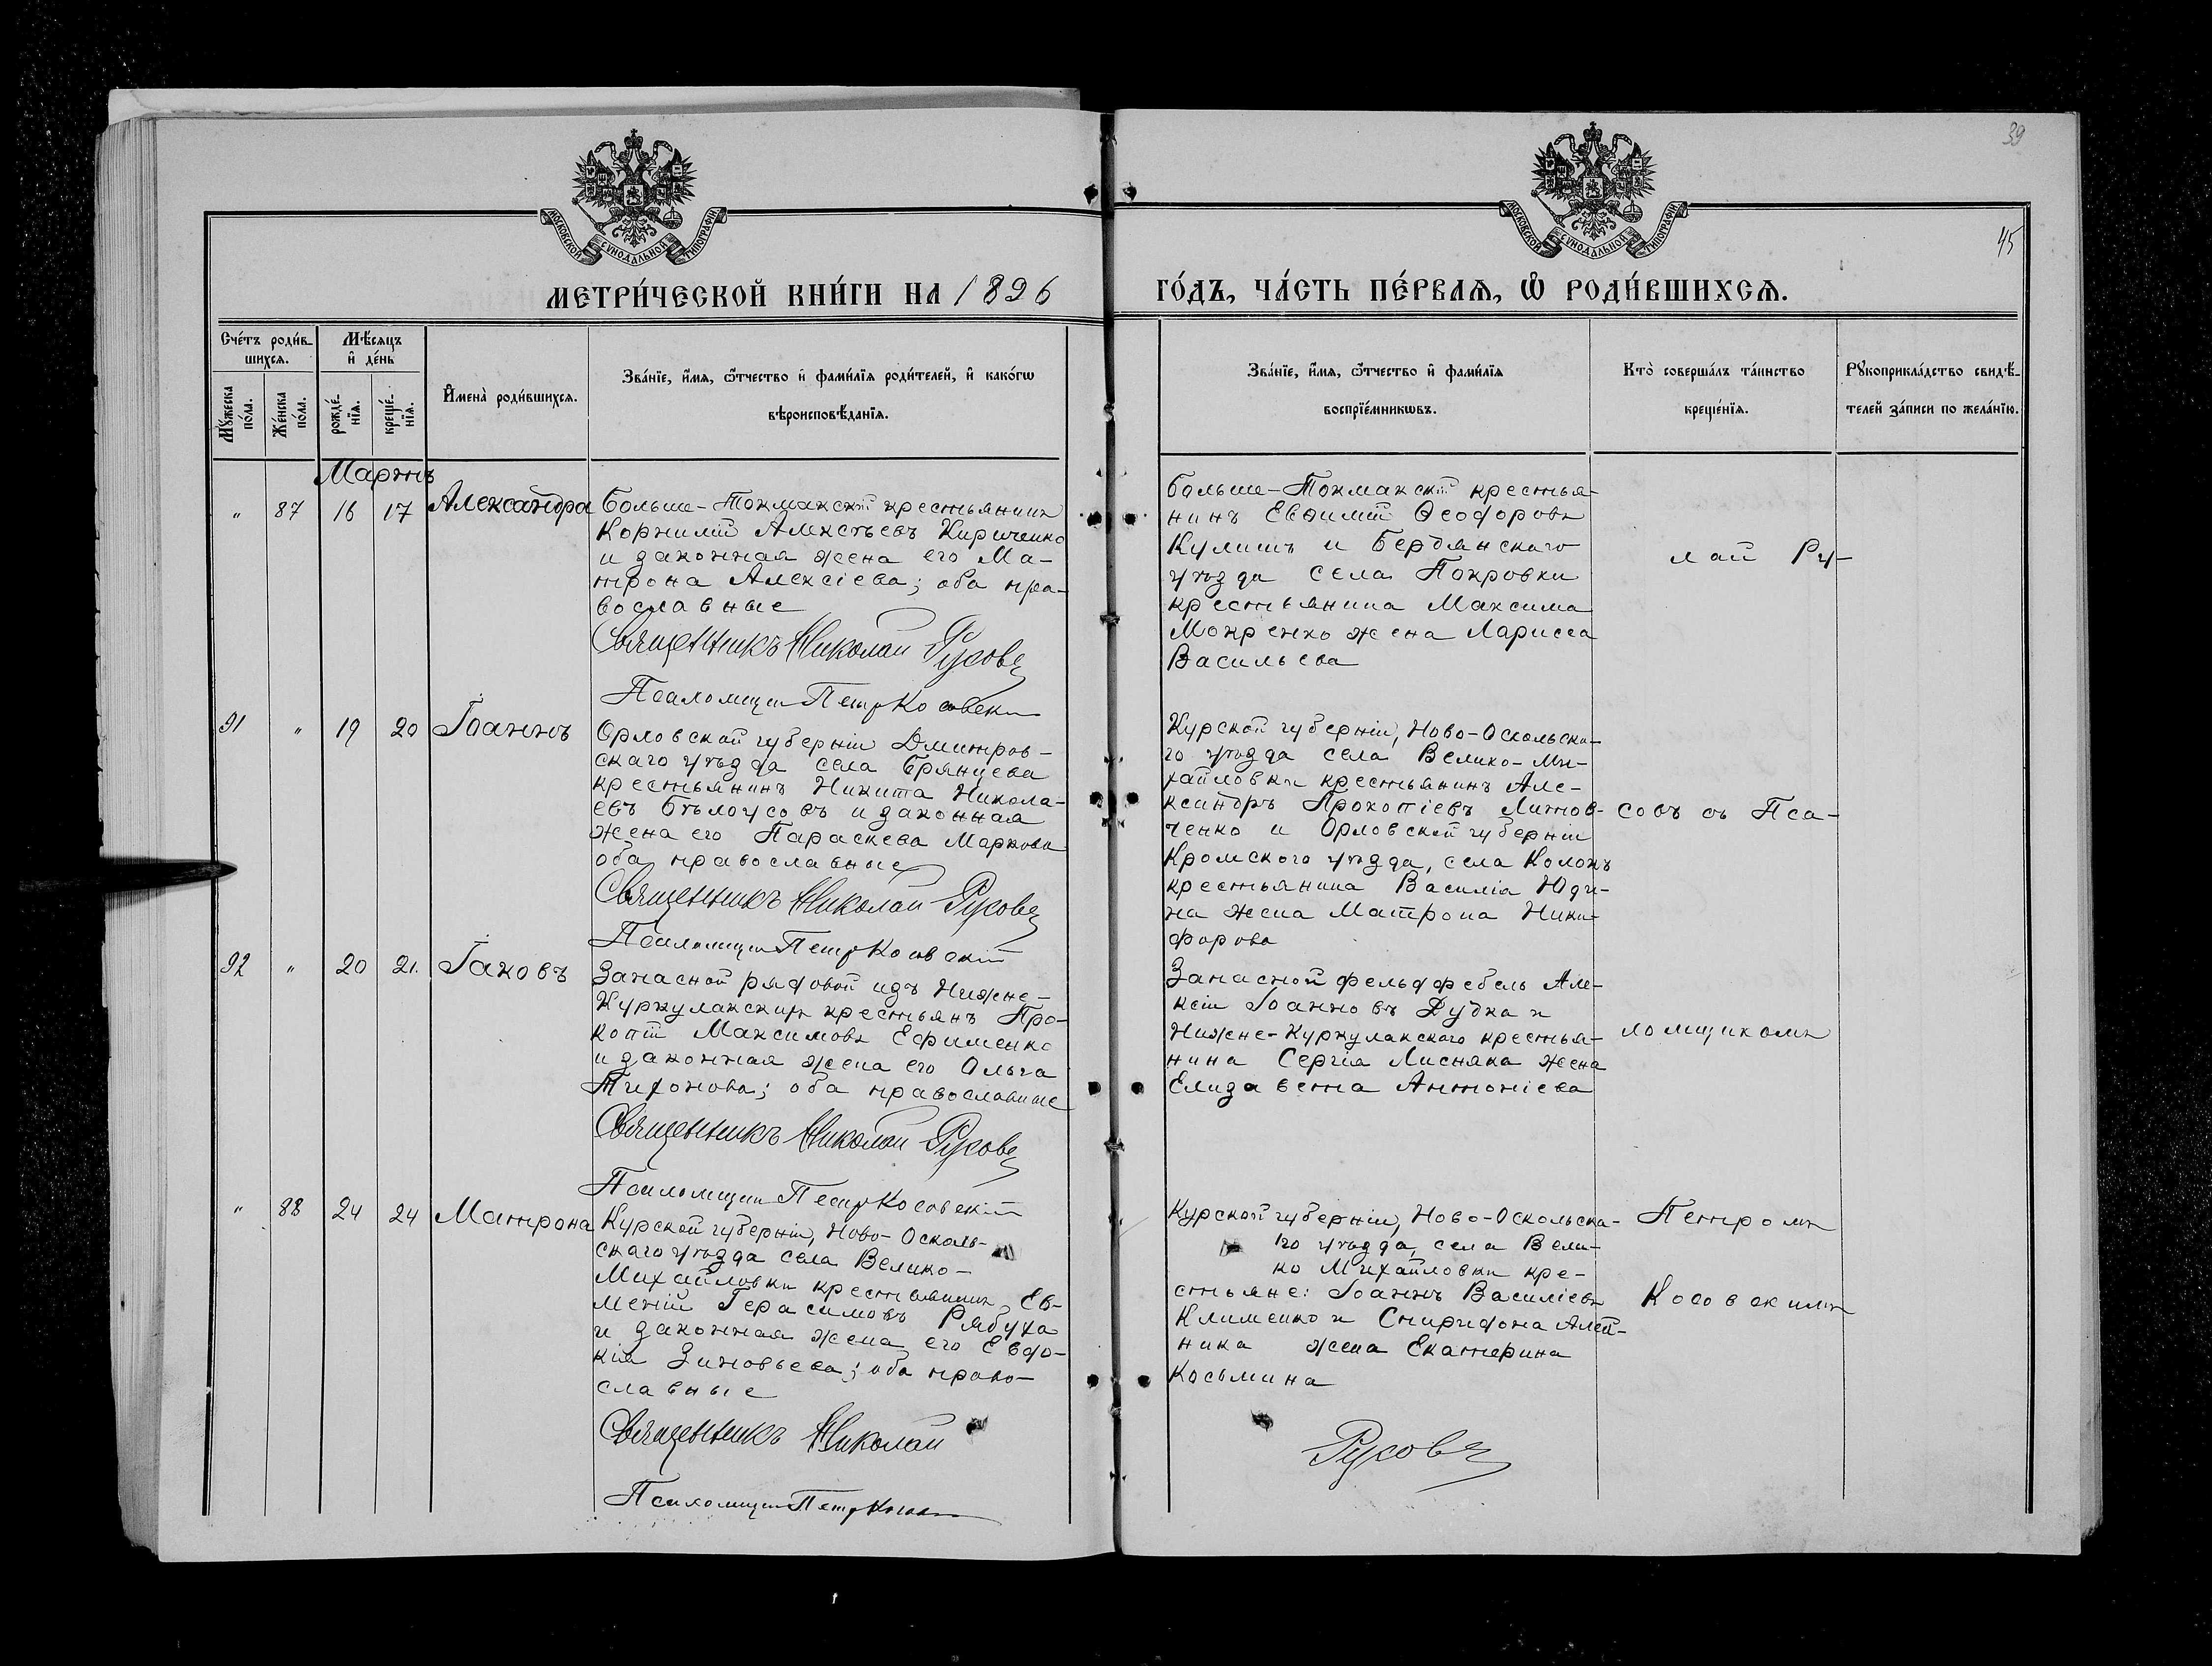 39
45
МОСКОВСКОЙ СѴНОДАЛЬНОЙ ТИПОГРАФІИ
МОСКОВСКОЙ СѴНОДАЛЬНОЙ ТИПОГРАФІИ
МЕТРИ́ЧЕСКОЙ КНИ́ГИ НА 1896
ГО́ДЪ, ЧА́СТЬ ПЕ́РВАѦ, Ѽ РОДИ́ВШИХСѦ.
Сче́тъ роди́в
шихсѧ.
Мꙋ́жеска
по́ла.
Же́нска
по́ла.
Мѣ́сѧцъ
и҆ де́нь
рожде́
нїѧ.
креще́
нїѧ.
И҆мена̀ роди́вшихсѧ.
Зва́нїе, и҆́мѧ, ѻ҆́тчество и҆ фами́лїѧ роди́телей, и҆ како́гѡ
вѣроисповѣ́данїѧ.
Зва́нїе, и҆́мѧ, ѻ҆́тчество и҆ фами́лїѧ
воспрїе́мникѡвъ.
Кто̀ соверша́лъ та́инство
креще́нїѧ.
Рꙋкоприкла́дство свидѣ́-
телей за́писи по жела́нїю.
Мартъ
" 87 16 17 Александра
Больше-Токмакскій крестьянинъ
Корнилій Алексѣевъ Кириченко
и законная жена его Ма-
трона Алексіева; оба пра-
вославные
Священникъ Николай Русовъ
Псаломщикъ Петръ Косовскій
Больше-Токмакскій крестья-
нинъ Евѳимій Ѳеодоровъ
Кулишъ и Бердянскаго
уѣзда села Покровки
крестьянина Максима
Мокренко жена Ларисса
Васильева
лай Ру-
91 " 19 20 Іоаннъ
Орловской губерніи Дмитров-
скаго уѣзда села Брянцева
крестьянинъ Никита Никола-
евъ Бѣлоусовъ и законная
жена его Параскева Маркова
оба православные
Священникъ Николай Русовъ
Псаломщикъ Петръ Косовскій
Курской губерніи, Ново-Оскольска-
го уѣзда села Велико-Ми-
хайловки крестьянинъ Але-
ксандръ Прокопіевъ Литов-
ченко и Орловской губерніи
Кромскаго уѣзда, села Колокъ
крестьянина Василія Юди-
на жена Матрона Ники-
форова
совъ съ Пса-
92 " 20 21. Іаковъ
Запасной рядовой изъ Нижне-
Куркулакскихъ крестьянъ Про-
копій Максимовъ Ефименко
и законная жена его Ольга
Тихонова; оба православные
Священникъ Николай Русовъ
Псаломщикъ Петръ Косовскій
Запасной фельдфебель Але-
ксій Іоанновъ Дудка и
Нижне-Куркулакскаго крестья-
нина Сергія Лисняка жена
Елизавета Антоніева
ломщикомъ
" 88 24 24 Матрона
Курской губерніи, Ново-Осколь-
скаго уѣзда села Велико-
Михайловки крестьянинъ Ев-
меній Герасимовъ Рябуха
и законная жена его Евдо-
кія Зиновьева; оба право-
славные
Священникъ Николай
Псаломщикъ Петръ
Курской губерніи, Ново-Оскольска-
го уѣзда, села Вели-
ко Михайловки кре-
стьяне: Іоаннъ Василіевъ
Клименко и Спиридона Алей-
ника жена Екатерина
Косьмина
Русовъ
Петромъ
Косовскимъ